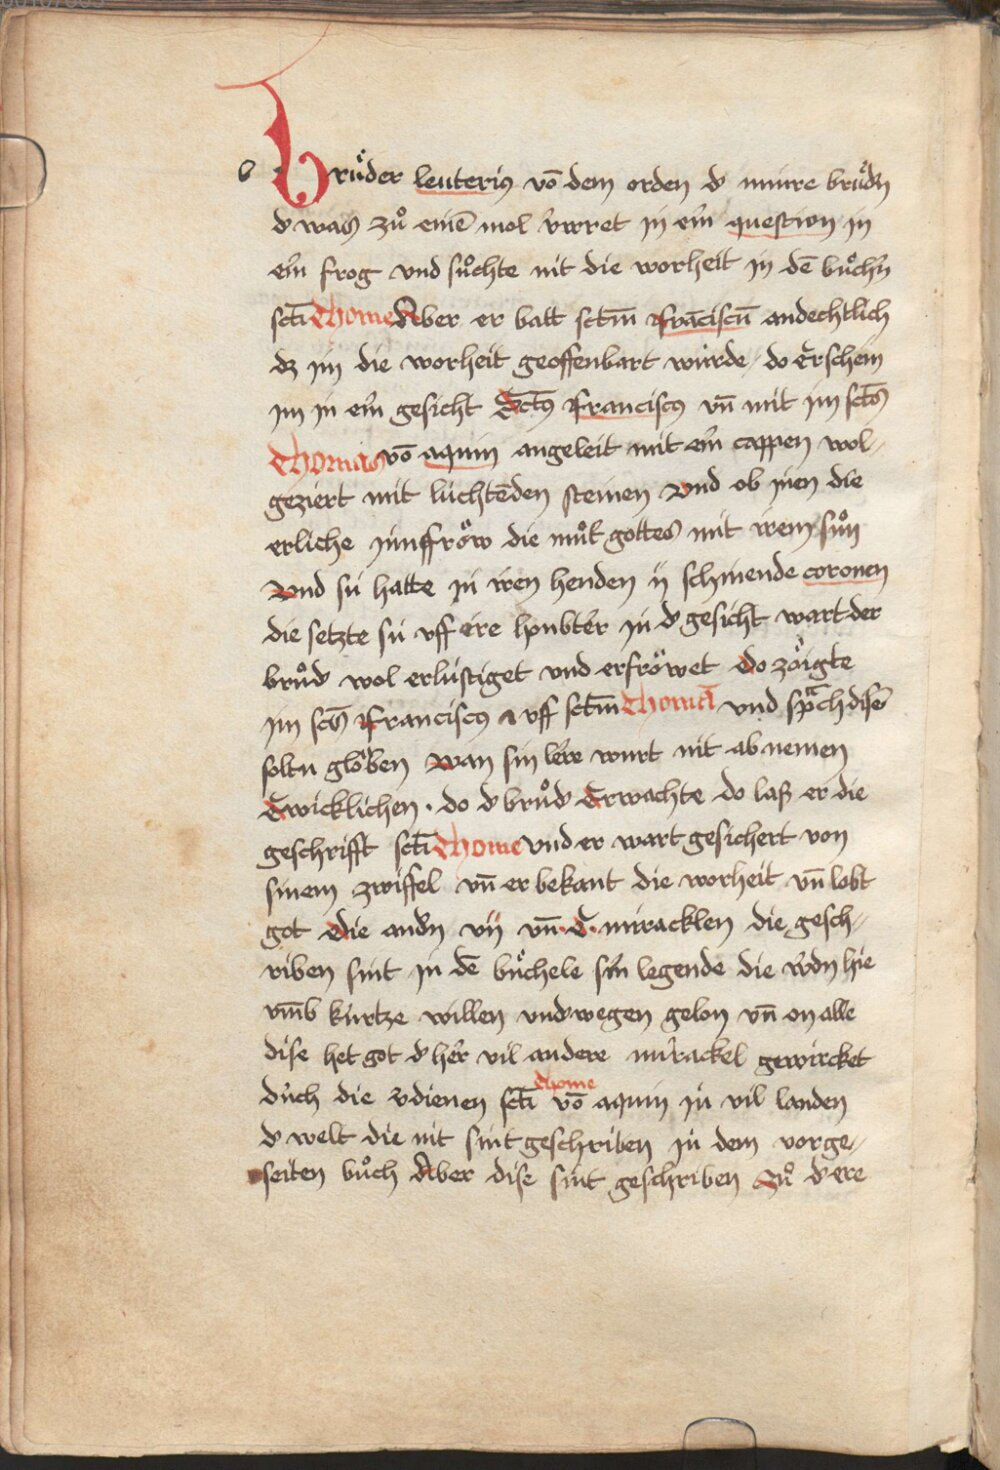 Bruͦder leuteriꝰ vō dem orden dˀ minre bruͤdˀn
dˀ was zuͦ einē mol vˀirret in eiˀm question in
eiˀm frog vnd suͦchte nit die worheit in dē buͤchˀn
sctī Thome Aber er batt sctm̄ franciscū andechtlich
dz im die worheit geoffenbart wúrde / do Erschein
im in eiˀm gesicht Sctꝰ Franciscꝰ vn̄ mit im sctꝰ
Thomas vō aquin angeleit mit eiˀm cappen wol⸗
geziert mit lúchtēden steinen Vnd ob inen die
erliche junffroͤw die muͦtˀ gottes mit irem suͦn
Vnd sú hatte in iren henden ij schinende coronen
die setzte sú vff ire hoͮbter in dˀ gesicht wart der
bruͦdˀ wol erlústiget vnd erfroͤwet Do zoͤigte
im sctꝰ Franciscꝰ vff sctm̄ Thomā vnd sprach disē
soltu gloͮben Wan sin lere wurt nit ab nemen
Ewicklichen . do dˀ bruͦdˀ Erwachte do laß er die
geschrifft sctī Thome vnd er wart gesichert von
sinem zwiffel vn̄ er bekant die worheit vn̄ lobt
got Die andˀn vij vn̄ .C. miracklen die gesch⸗
riben sint in dē buͤchele siˀn legende die wˀdn hie
vm̄b kúrtze willen vndˀwegen gelon vn̄ on alle
dise het got dˀ her vil andere mirackel gewircket
duˀch die vˀdienen sctī Thome vō aquin in vil landen
dˀ welt die nit sint geschriben in dem vorge⸗
seiten buͦch Aber dise sint geschriben Zuͦ dˀ ere